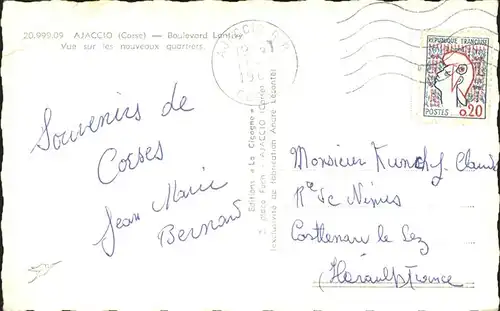 20.999.09 AJACCIO (Corse) — Boulevard Lantivy
Vue sur les nouveaux quartiers.
AJACCIO R.P.
REPUBLIQUE FRANÇAISE
POSTES 0,20
Souvenirs de
Corses
Jean Marie
Bernard
Editions « La Cigogne »
2, place Foch - AJACCIO (Corse)
(exclusivité de fabrication André Leconte)
Monsieur Claude
Rte de Nîmes
Castlenau le Lez
(Hérault France